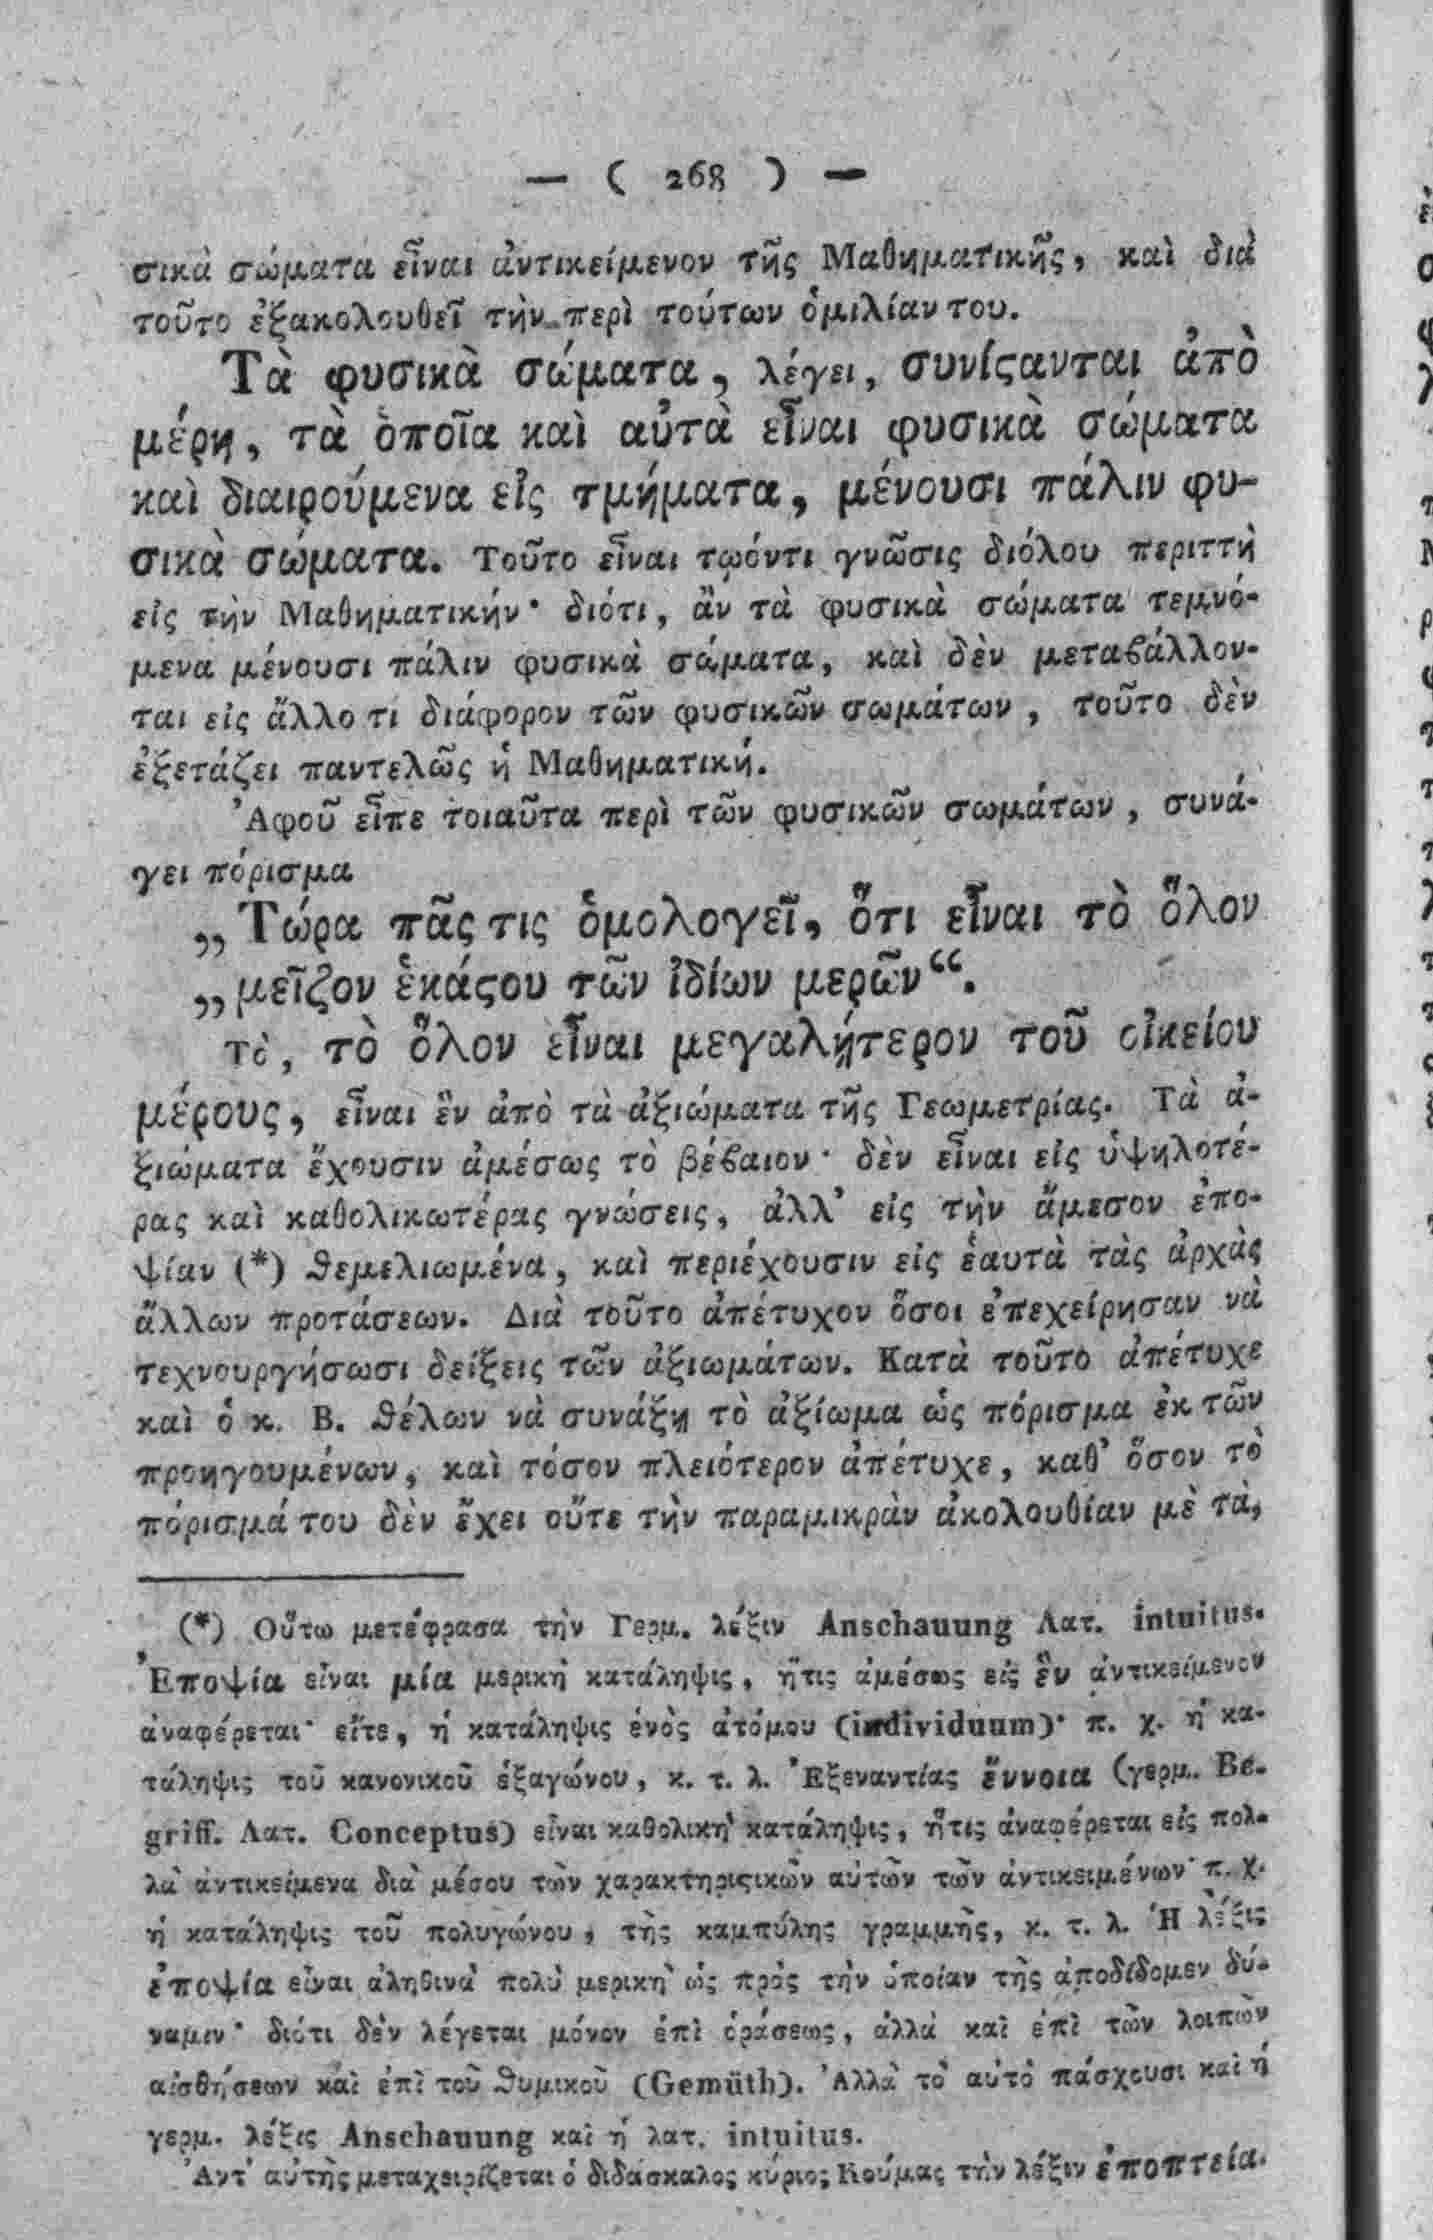 — ( 268 ) —
σικὰ σώματα εἶναι ἀντικείμενον τῆς Μαθηματικῆς, καὶ διὰ
τοῦτο ἐξακολουθεῖ τὴν περὶ τούτων ὁμιλίαν του.
Τὰ φυσικὰ σώματα, λέγει, συνίςανται ἀπὸ
μέρη, τὰ ὁποῖα καὶ αὐτὰ εἶναι φυσικὰ σώματα
καὶ διαιρούμενα εἰς τμήματα, μένουσι πάλιν φυ-
σικὰ σώματα. Τοῦτο εἶναι τῳόντι γνῶσις διόλου περιττὴ
εἰς τὴν Μαθηματικήν· διότι, ἂν τὰ φυσικὰ σώματα τεμνό-
μενα μένουσι πάλιν φυσικὰ σώματα, καὶ δὲν μεταβάλλον-
ται εἰς ἄλλο τι διάφορον τῶν φυσικῶν σωμάτων, τοῦτο δὲν
ἐξετάζει παντελῶς ἡ Μαθηματική.
Ἀφοῦ εἶπε τοιαῦτα περὶ τῶν φυσικῶν σωμάτων, συνά-
γει πόρισμα
„Τώρα πᾶς τις ὁμολογεῖ, ὅτι εἶναι τὸ ὅλον
„μεῖζον ἑκάςου τῶν ἰδίων μερῶν“.
Τὸ, τὸ ὅλον εἶναι μεγαλήτερον τοῦ οἰκείου
μέρους, εἶναι ἓν ἀπὸ τὰ ἀξιώματα τῆς Γεωμετρίας. Τὰ ἀ-
ξιώματα ἔχουσιν ἀμέσως τὸ βέβαιον· δὲν εἶναι εἰς ὑψηλοτέ-
ρας καὶ καθολικωτέρας γνώσεις, ἀλλ’ εἰς τὴν ἄμεσον ἐπο-
ψίαν (*) θεμελιωμένα, καὶ περιέχουσιν εἰς ἑαυτὰ τὰς ἀρχὰς
ἄλλων προτάσεων. Διὰ τοῦτο ἀπέτυχον ὅσοι ἐπεχείρησαν νὰ
τεχνουργήσωσι δείξεις τῶν ἀξιωμάτων. Κατὰ τοῦτο ἀπέτυχε
καὶ ὁ κ. Β. θέλων νὰ συνάξῃ τὸ ἀξίωμα ὡς πόρισμα ἐκ τῶν
προηγουμένων, καὶ τόσον πλειότερον ἀπέτυχε, καθ’ ὅσον τὸ
πόρισμά του δὲν ἔχει οὔτε τὴν παραμικρὰν ἀκολουθίαν μὲ τὰ,
(*) Οὕτω μετέφρασα τὴν Γερμ. λέξιν Anschauung Λατ. intuitus.
Ἐποψία εἶναι μία μερικὴ κατάληψις, ἥτις ἀμέσως εἰς ἓν ἀντικείμενον
ἀναφέρεται· εἴτε, ἡ κατάληψις ἑνὸς ἀτόμου (individuum)· π. χ. ἡ κα-
τάληψις τοῦ κανονικοῦ ἑξαγώνου, κ. τ. λ. Ἐξεναντίας ἔννοια (γερμ. Be-
griff. Λατ. Conceptus) εἶναι καθολικὴ κατάληψις, ἥτις ἀναφέρεται εἰς πολ-
λὰ ἀντικείμενα διὰ μέσου τῶν χαρακτηριςικῶν αὐτῶν τῶν ἀντικειμένων· π. χ.
ἡ κατάληψις τοῦ πολυγώνου, τῆς καμπύλης γραμμῆς, κ. τ. λ. Ἡ λέξις
ἐποψία εἶναι ἀληθινὰ πολὺ μερικὴ ὡς πρὸς τὴν ὁποίαν τῆς ἀποδίδομεν δύ-
ναμιν· διότι δὲν λέγεται μόνον ἐπὶ ὁράσεως, ἀλλὰ καὶ ἐπὶ τῶν λοιπῶν
αἰσθήσεων καὶ ἐπὶ τοῦ θυμικοῦ (Gemüth). Ἀλλὰ τὸ αὐτὸ πάσχουσι καὶ ἡ
γερμ. λέξις Anschauung καὶ ἡ λατ. intuitus.
Ἀντ’ αὐτῆς μεταχειρίζεται ὁ διδάσκαλος κύριος Κούμας τὴν λέξιν ἐποπτεία.